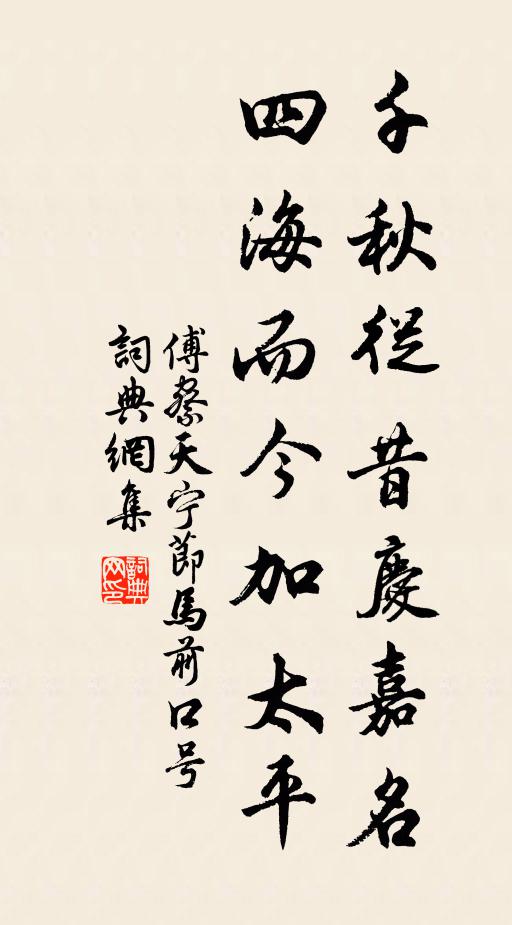 千秋從昔慶嘉名
四海而今加太平
傅察天宁節馬前口号
詞典網集
詞典网印